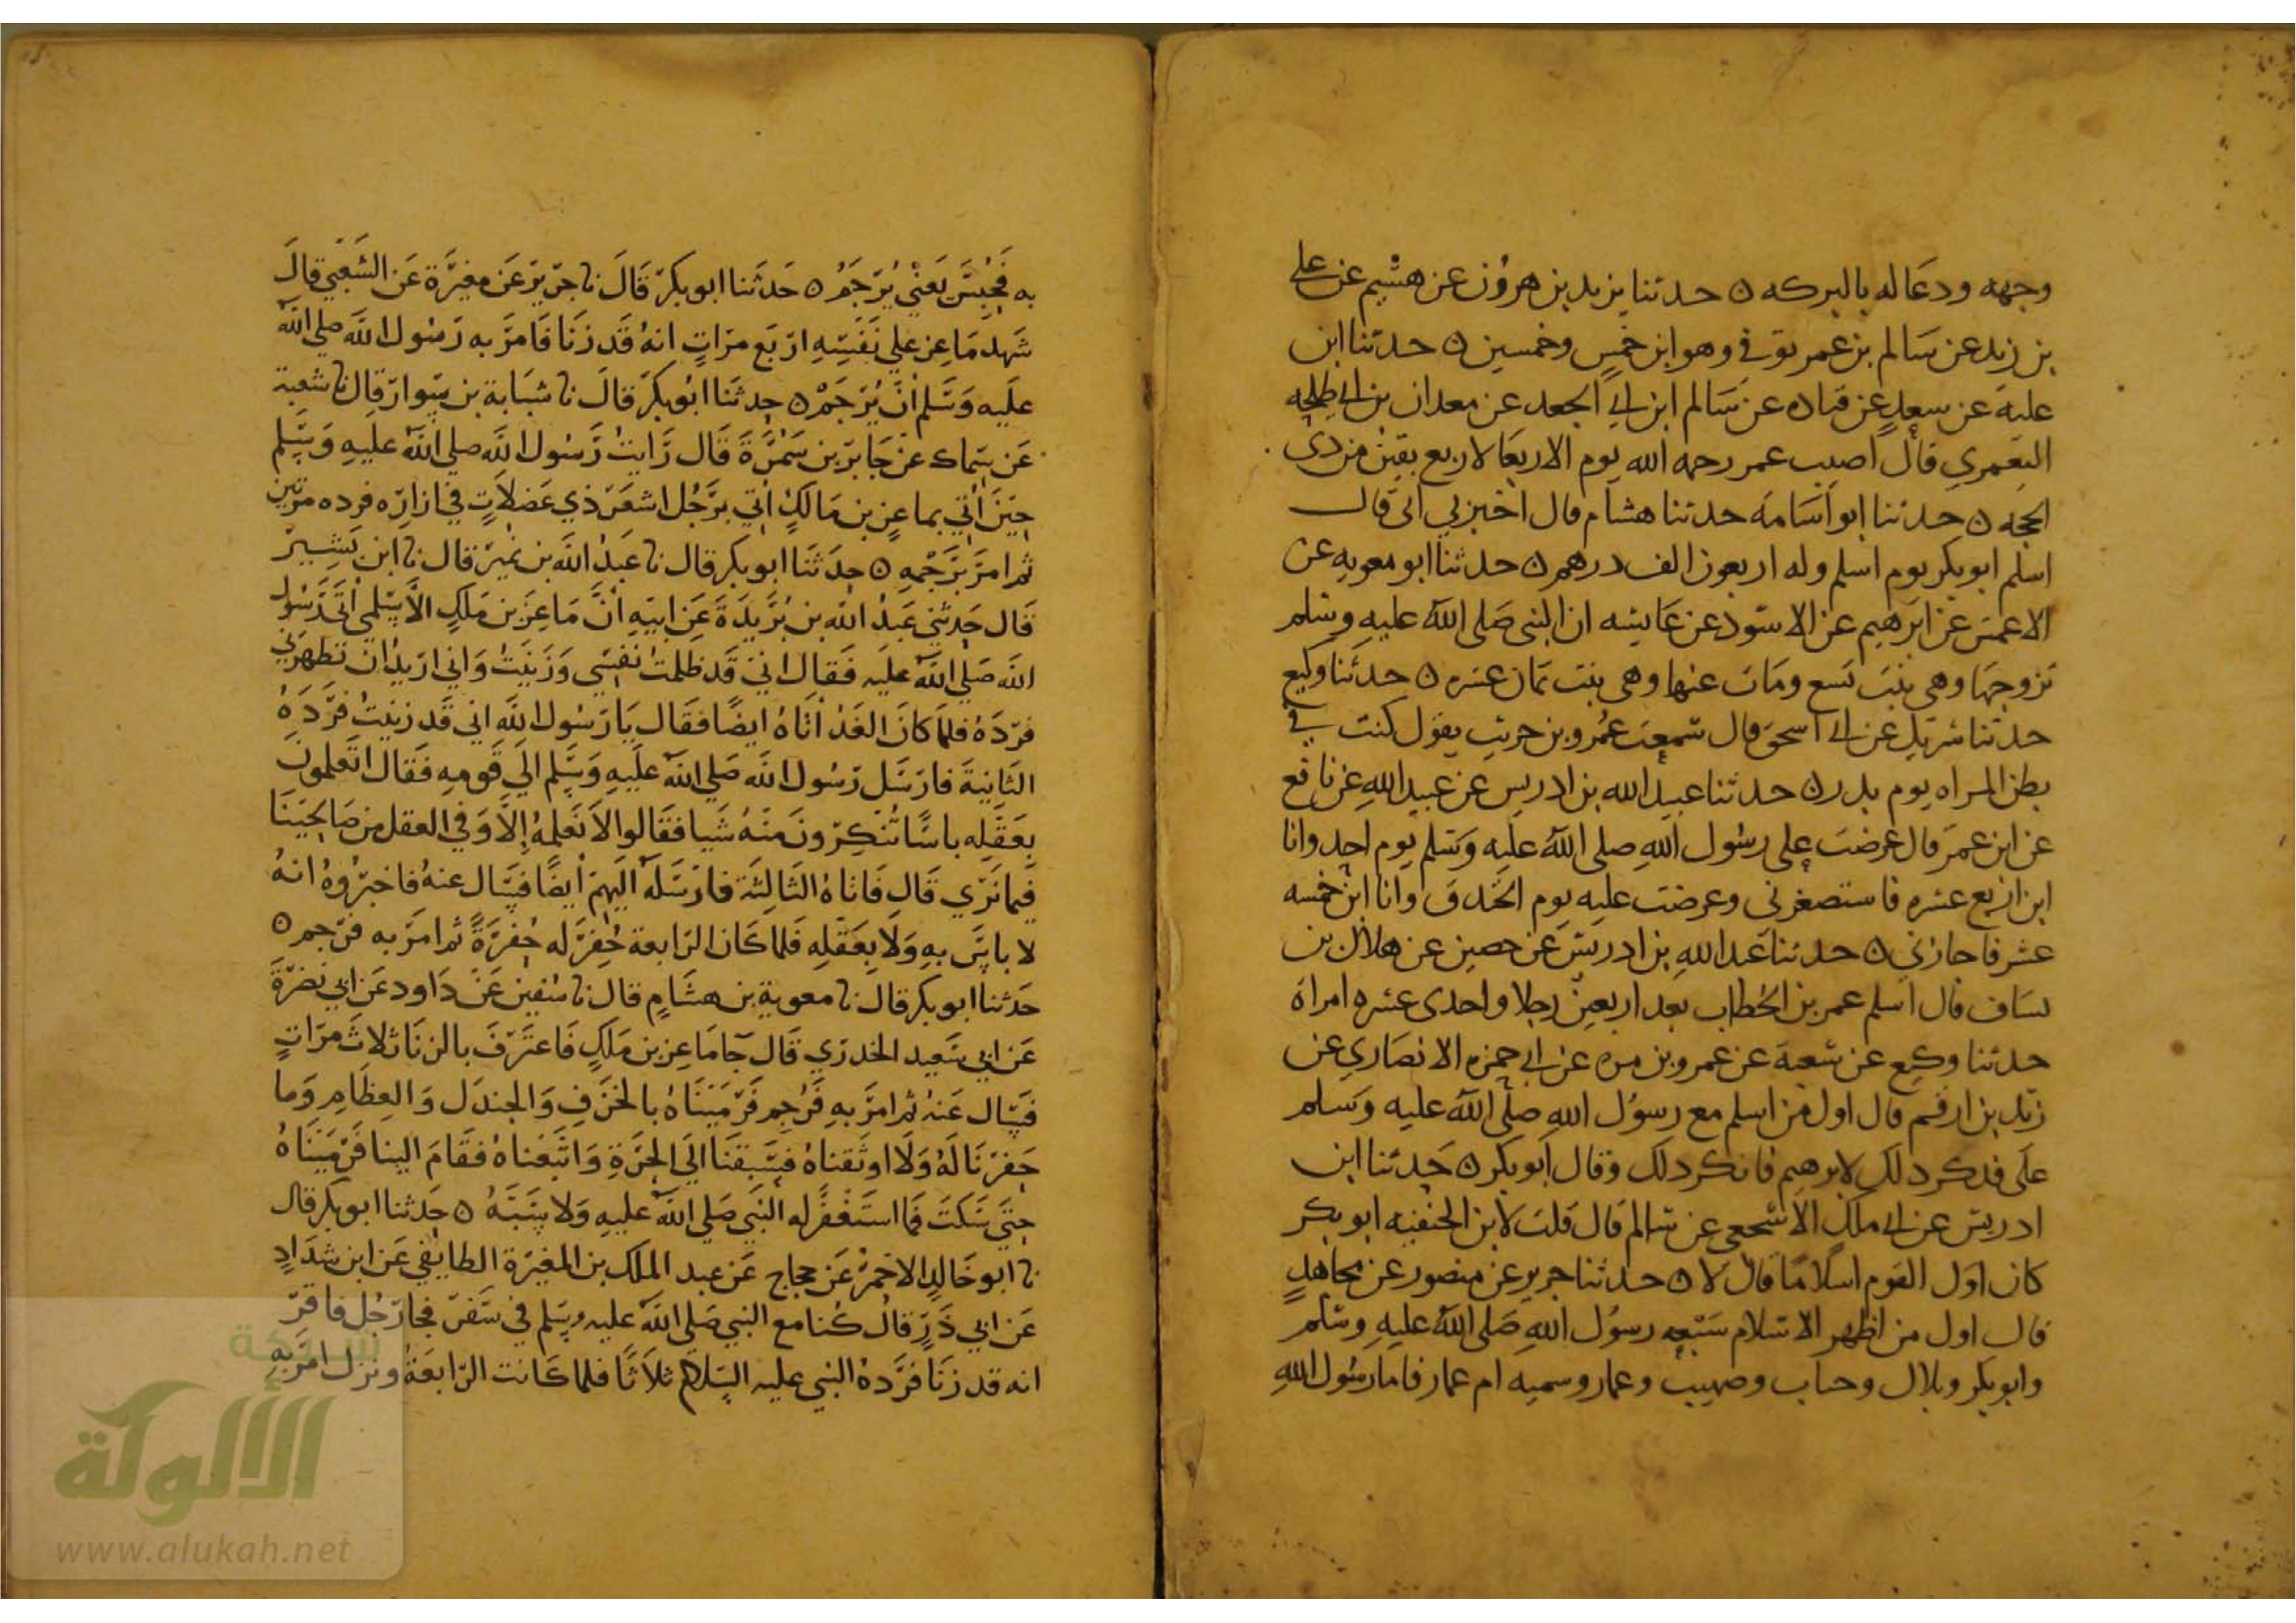 وجهه ودعا له بالبركه ه حدثنا يزيد بن هرون عن هشيم عن على
بن زيد عن سالم بن عمر توفي وهو ابن خمس وخمسين ه حدثنا ابن
علية عن سعيد عن قتاده عن سالم ابن ابي الجعد عن معدان بن ابي طلحه
اليعمري قال اصيب عمر رحمه الله يوم الاربعا لاربع بقين من ذى
الحجه ه حدثنا ابو اسامه حدثنا هشام قال اخبرني ابى قال
اسلم ابو بكر يوم اسلم وله اربعون الف درهم ه حدثنا ابو معويه عن
الاعمش عن ابرهيم عن الاسود عن عايشه ان النبى صلى الله عليه وسلم
تزوجها وهى بنت تسع ومات عنها وهى بنت ثمان عشره ه حدثنا وكيع
حدثنا شريك عن ابي اسحق قال سمعت عمرو بن حريث يقول كنت في
بطن المراه يوم بدر ه حدثنا عبد الله بن ادريس عن عبيد الله عن نافع
عن ابن عمر قال عرضت على رسول الله صلى الله عليه وسلم يوم احد وانا
ابن اربع عشره فاستصغرنى وعرضت عليه يوم الخندق وانا ابن خمسه
عشر فاجازني ه حدثنا عبد الله بن ادريس عن حصين عن هلال بن
يساف قال اسلم عمر بن الخطاب بعد اربعين رجلا واحدى عشره امراة
حدثنا وكيع عن شعبة عن عمرو بن مره عن ابي حمزه الانصاري عن
زيد بن ارقم قال اول من اسلم مع رسول الله صلى الله عليه وسلم
على فذكر ذلك لابرهيم فانكر ذلك وقال ابو بكر ه حدثنا ابن
ادريس عن ابي ملك الاشجعى عن سالم قال قلت لابن الحنفيه ابو بكر
كان اول القوم اسلاما قال لا ه حدثنا جرير عن منصور عن مجاهد
قال اول من اظهر الاسلام سبعه رسول الله صلى الله عليه وسلم
وابو بكر وبلال وخباب وصهيب وعمار وسميه ام عمار فاما رسول الله
به فحبس يعني يرجم ه حدثنا ابو بكر قال نا جرير عن مغيرة عن الشعبي قال
شهد ماعز علي نفسه اربع مرات انه قد زنا فامر به رسول الله صلي الله
عليه وسلم ان يرجم ه حدثنا ابو بكر قال نا شبابة بن سوار قال نا شعبة
عن سماك عن جابر بن سمرة قال رايت رسول الله صلي الله عليه وسلم
حين اتي بماعز بن مالك اتي برجل اشعر ذي عضلات في ازاره فرده مرتين
ثم امر برجمه ه حدثنا ابو بكر قال نا عبد الله بن نمير قال نا ابن بشير
قال حدثني عبد الله بن بريدة عن ابيه ان ماعز بن ملك الاسلمي اتى رسول
الله صلي الله عليه فقال اني قد ظلمت نفسي وزنيت واني اريد ان تطهرني
فرده فلما كان الغد اتاه ايضا فقال يا رسول الله اني قد زنيت فرده
الثانية فارسل رسول الله صلي الله عليه وسلم الي قومه فقال اتعلمون
بعقله باسا تنكرون منه شيا فقالوا لا نعلمه إلا وفي العقل من صالحينا
فيما نري قال فاتاه الثالثة فارسله اليهم ايضا فسال عنه فاخبروه انه
لا باس به ولا بعقله فلما كان الرابعة حفر له حفرة ثم امر به فرجم ه
حدثنا ابو بكر قال نا معوية بن هشام قال نا سفين عن داود عن ابي نضرة
عن ابي سعيد الخدري قال جا ماعز بن ملك فاعترف بالزنا ثلاث مرات
فسال عنه ثم امر به فرجم فرميناه بالخزف والجندل والعظام وما
حفرنا له ولا اوثقناه فسبقنا الي الحرة واتبعناه فقام الينا فرميناه
حتي سكت فما استغفر له النبي صلي الله عليه ولا سبه ه حدثنا ابو بكر قال
نا ابو خالد الاحمر عن حجاج عن عبد الملك بن المغيرة الطايفي عن ابن شداد
عن ابي ذر قال كنا مع النبي صلي الله عليه وسلم في سفر فجا رجل فاقر
انه قد زنا فرده النبي عليه السلام ثلاثا فلما كانت الرابعة ونزل امر به
شبكة
الألوكة
www.alukah.net